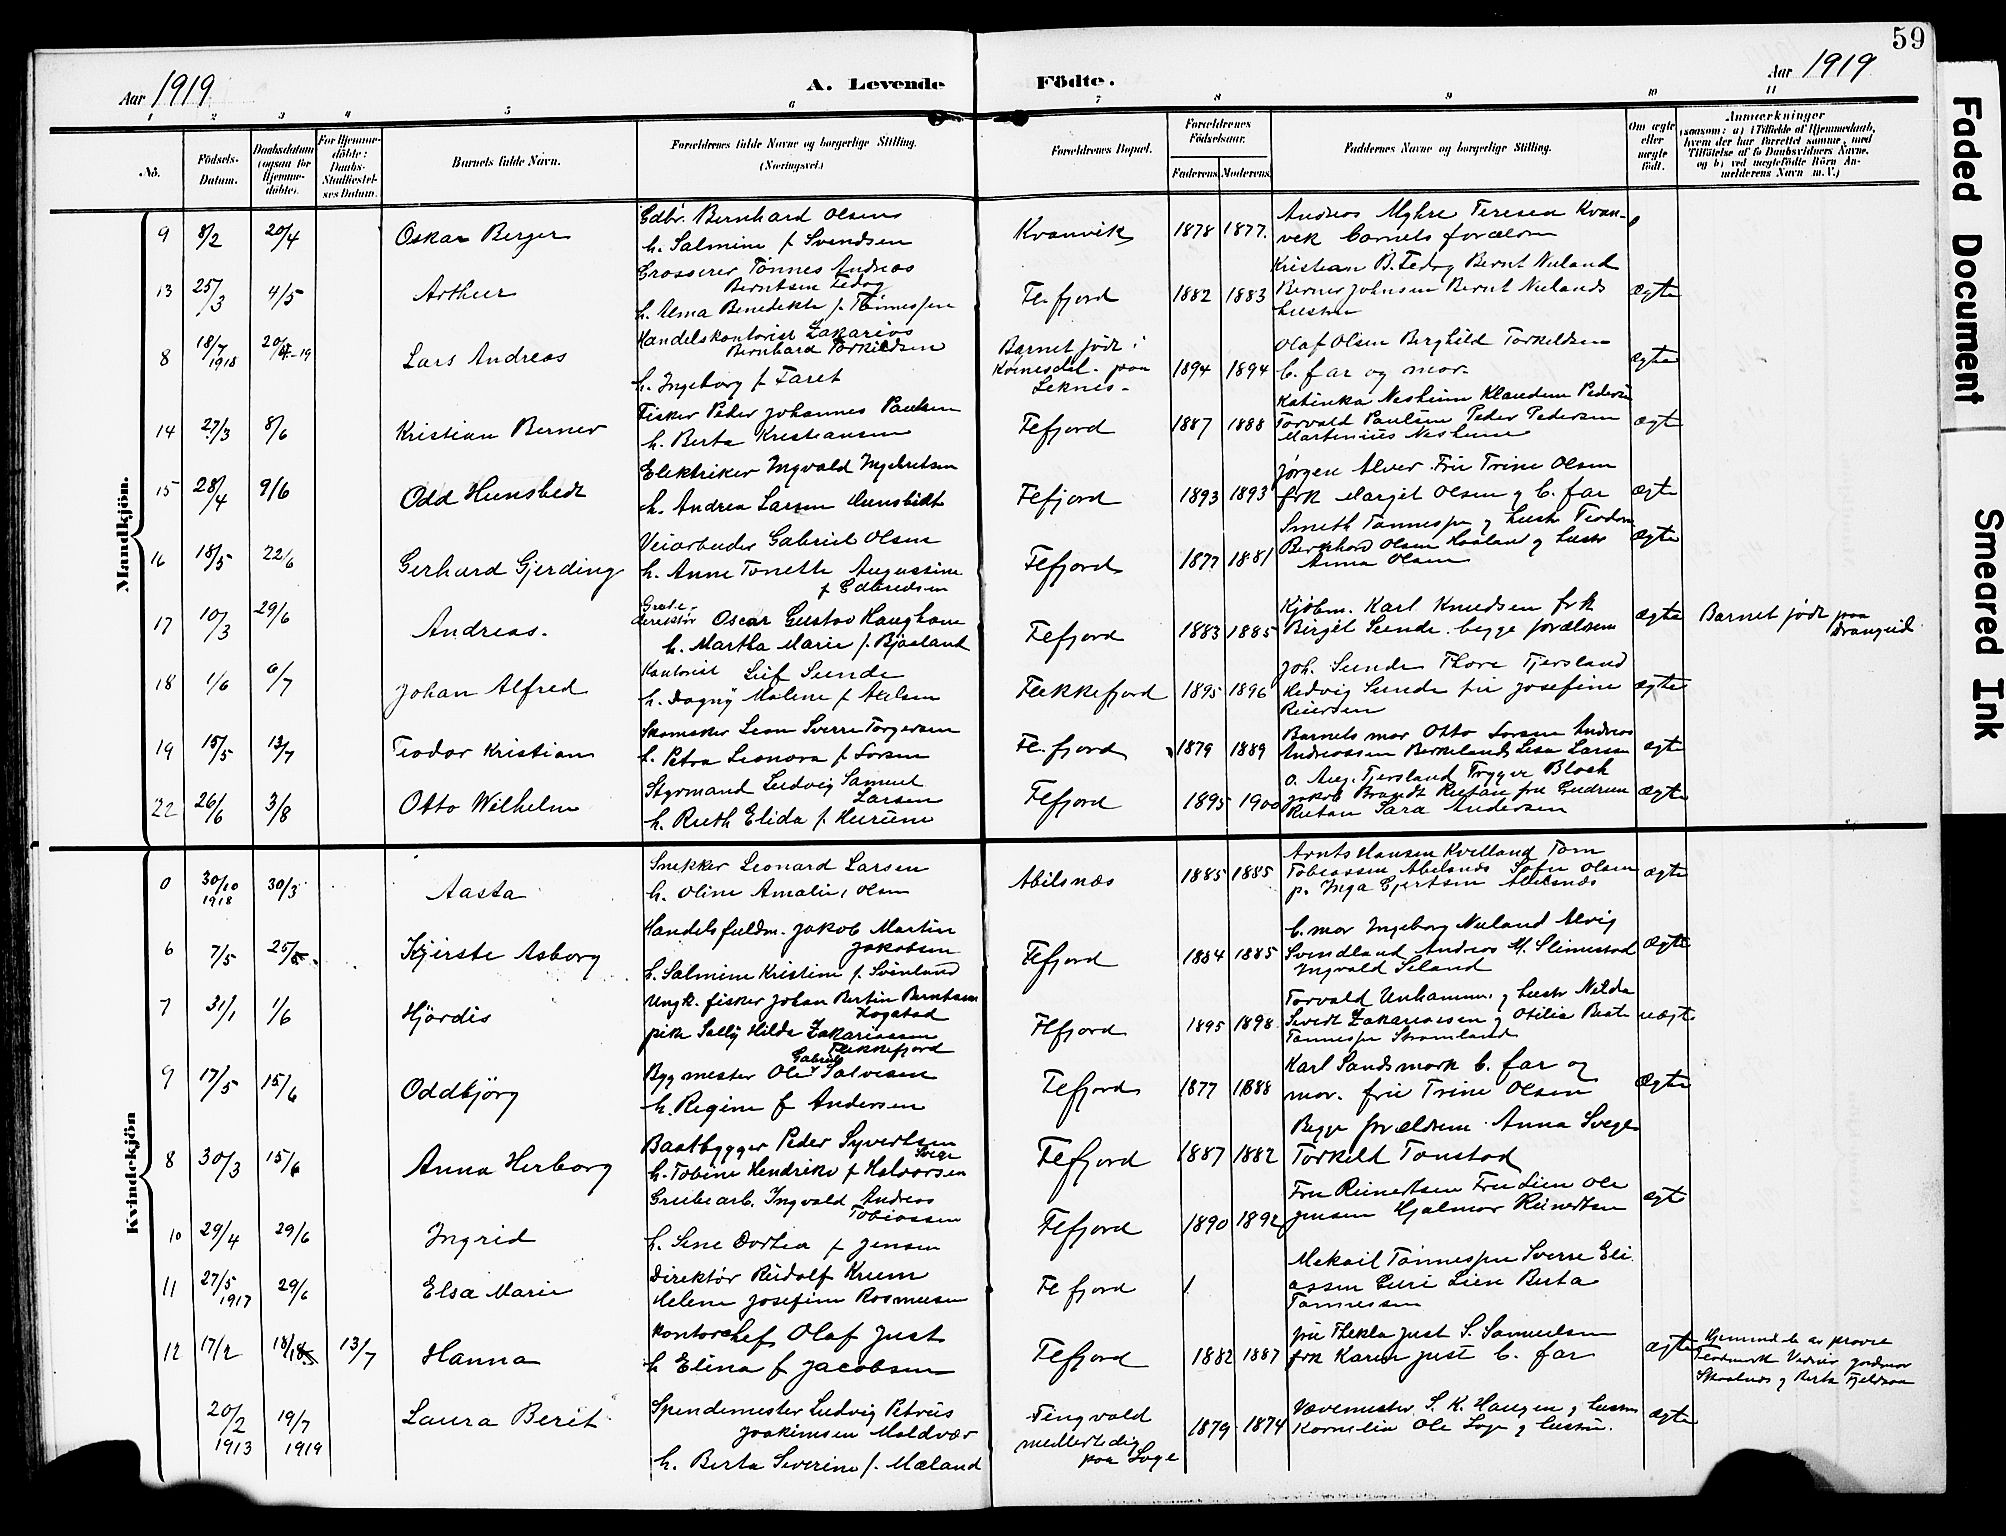 59
Aar 1919
A. Levende Födte.
Aar 1919
1 2 3 4 5 6 7 8 9 10 11
No.
Födsels-
Datum.
Daabsdatum
(ogsaa for
Hjemme-
döbte).
For Hjemme-
döbte:
Daabs-
Stadfæstel-
ses Datum.
Barnets fulde Navn.
Forældrenes fulde Navne og borgerlige Stilling.
(Næringsvei.)
Forældrenes Bopæl.
Forældrenes
Födselsaar.
Faderens. Moderens.
Faddernes Navne og borgerlige Stilling.
Om ægte
eller
uægte
födt.
Anmærkninger
(saasom: a) i Tilfælde af Hjemmedaab,
hvem der har forrettet samme, med
Tilföielse af to Daabsvidners Navne,
og b) ved uegtefödte Börn An-
melderens Navn m. V.)
Mandkjön.
9 8/2 20/4 Oskar Berger
Edbr. Bernhard Olsen
h. Salmine f Svendsen
Kvanvik 1878 1877.
Andreas Myhre Teresen Kvan-
vek barnets forældre
13 25/3 4/5 Arthur
Grosserer Tönnes Andreas
Berntsen Tedog
h. Alma Benedikte f. Tönnessen
Flefjord 1882 1883
Kristian B. Tedog Bernt Nuland
Berner Johnsen Bernt Nulands
hustru
ægte
8 18/7 1918 20/4-19 Lars Andreas
Handelskontorist Zakarias
Bernhard Torkildsen
h. Ingeborg f Faret
Barnet født i
Kvinesdal - paa
Leknes -
1894 1894
Olaf Olsen Berghild Torkeldsen
b. far og mor.
ægte
14 27/3 8/6 Kristian Berner
Fisker Peder Johannes Paulsen
h. Berta Kristiansen
Flefjord 1887 1888
Katinka Nesheim Klaudine Pedersen
Torvald Paulsen Peder Pedersen
Martinius Nesheim
ægt
15 28/4 9/6 Odd Hunsbedt
Elektriker Ingvald Ingebretsen
h. Andrea Larsen Hunsbedt
Flefjord 1893 1893
Jørgen Alver Fru Trine Olsen
frk Margit Olsen og b. far
ægte
16 18/5 22/6 Gerhard Gjerding
Veiarbeider Gabriel Olsen
h. Anne Tonette Augustine
f Edbredsen
Flefjord 1877 1881
Smeth Tønnessen og hustr Teodora
Bernhard Olsen Haaland og hustr
Anna Olsen
ægte
17 10/3 29/6 Andreas.
Grube-
direktör Oscar Gustav Haugham
h. Martha Marie f. Bjåaland
Flefjord 1883 1885
Kjöbm. Karl Knudsen frk
Birgit Sunde. begge forældrene
ægte
Barnet født paa
Drangeid
18 1/6 6/7 Johan Alfred
Kontorist Leif Sunde
h. Dagny Malene f Nelsen
Flekkefjord 1895 1896
Joh. Sunde Thora Tjersland
Hedvig Sunde fru Josefine
Reiersen
ægte
19 15/5 13/7 Teodor Kristian
Skomaker Leon Sverre Torgersen
h. Petra Leonora f Larsen
Flefjord 1879 1889
Barnets mor Otto Larsen Andreas
Andreassen Birkeland Lisa Larsen
ægte
22 26/6 3/8 Otto Wilhelm
Styrmand Ludvig Samuel
Larsen
h. Ruth Elida f Hurum
Flefjord 1895 1900
O. Aug. Tjersland Trygve Bloch
Jakob Brandt Reutan fru Gudrun
Reutan Sara Andersen
ægte
Kvindekjön
0 30/10 1918 30/3 Aasta
Snekker Leonard Larsen
h. Oline Amalie, Olsen
Abelsnæs 1885 1885
Arnt Hansen Kvelland Tom
Tobiassen Abelsnæs Sofie Olsen
p. Inga Gjertsen Abelsnæs
ægte
6 7/5 25/5. Kjerste Asborg
Handelsfuldm. Jakob Martin
Jakobsen
h. Salmine Kristine f. Svinland
Flefjord 1884 1885
b. mor Ingeborg Nuland Alvig
Svindland Andreas M. Slimestad
Ingvald Seland
ægte
7 31/1 1/6 Hjördis
Ungk. fisker Johan Bertin Berntsen
Hogstad
pike Sally Hilda Zakariassen
Flekkefjord
Flefjord 1895 1898
Torvald Unhammer og hustr Nilda
Sivedt Zakariassen og Otilie Beate
Tønnesen Strømland
uægte
9 17/5 15/6 Oddbjörg
Bygmester Ole Gabriel Salvesen
h. Regine f Andersen
Flefjord 1877 1888
Karl Sandsmark b. far og
mor. fru Trine Olsen
ægte
8 30/3 15/6 Anna Herborg
Baatbygger Peder Syvertsen
Svege
h. Tobine Hendrike f Halvorsen
Flefjord 1887 1882
Begge forældrene Anna Svege
Torkeld Tonstad
10 29/4 29/6 Ingrid
Grubearb. Ingvald Andreas
Tobiassen
h. Lene Dortea f Jensen
Flefjord 1890 1892
Fru Reinertsen Fru Lien Ole
Jensen Hjalmar Reinertsen
ægte
11 27/5 1917 29/6 Elsa Marie
Direktör Rudolf Krum
Helene Josefine Rasmusen
Flefjord
Mekail Tönnessen Sverre Eli
assen Guri Lien Berta
Tønnessen
12 17/2 18/ 13/7 Hanna
Kontorchef Olaf Just
h Elina f Jacobsen
Flefjord 1882 1887
fru Thekla Just S. Samuelsen
frk Karen Just b. far
ægte
Hjemmed. av provst
Flodmark Vidner jordmor
Skaalnes og Berta Fjeldsaa
20/2 1913 19/7 1919 Laura Berit
Spindemester Ludvig Petrus
Joakimsen Moldvær
h. Berta Severine f. Mæland
Tingvald
midlertidig
paa Loge
1879 1874
Vævemester S. K. Haugen og hustru
Kornelia Ole Loge og hustru.
ægte
Faded Document
Smeared Ink